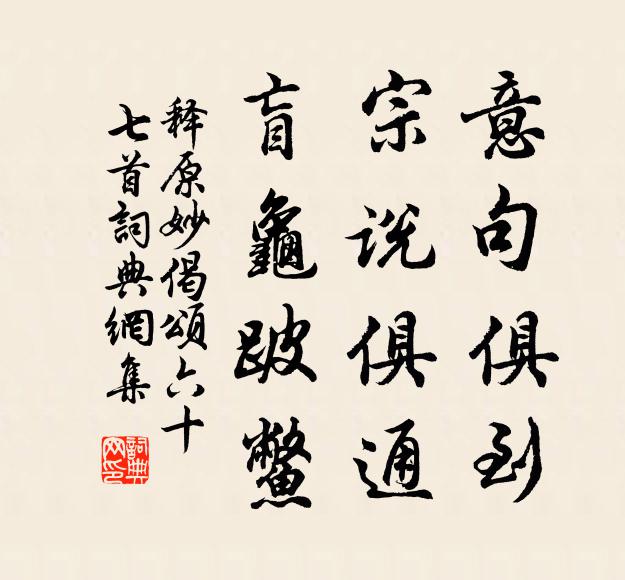 意句俱到
宗说俱通
盲龜跛鱉
释原妙偈頌六十
七首詞典網集
詞典网印